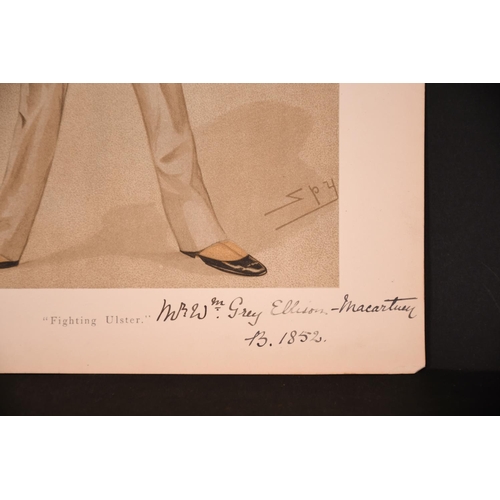 Spy
"Fighting Ulster." Mr Wm. Grey Ellison-Macartney
B. 1852.